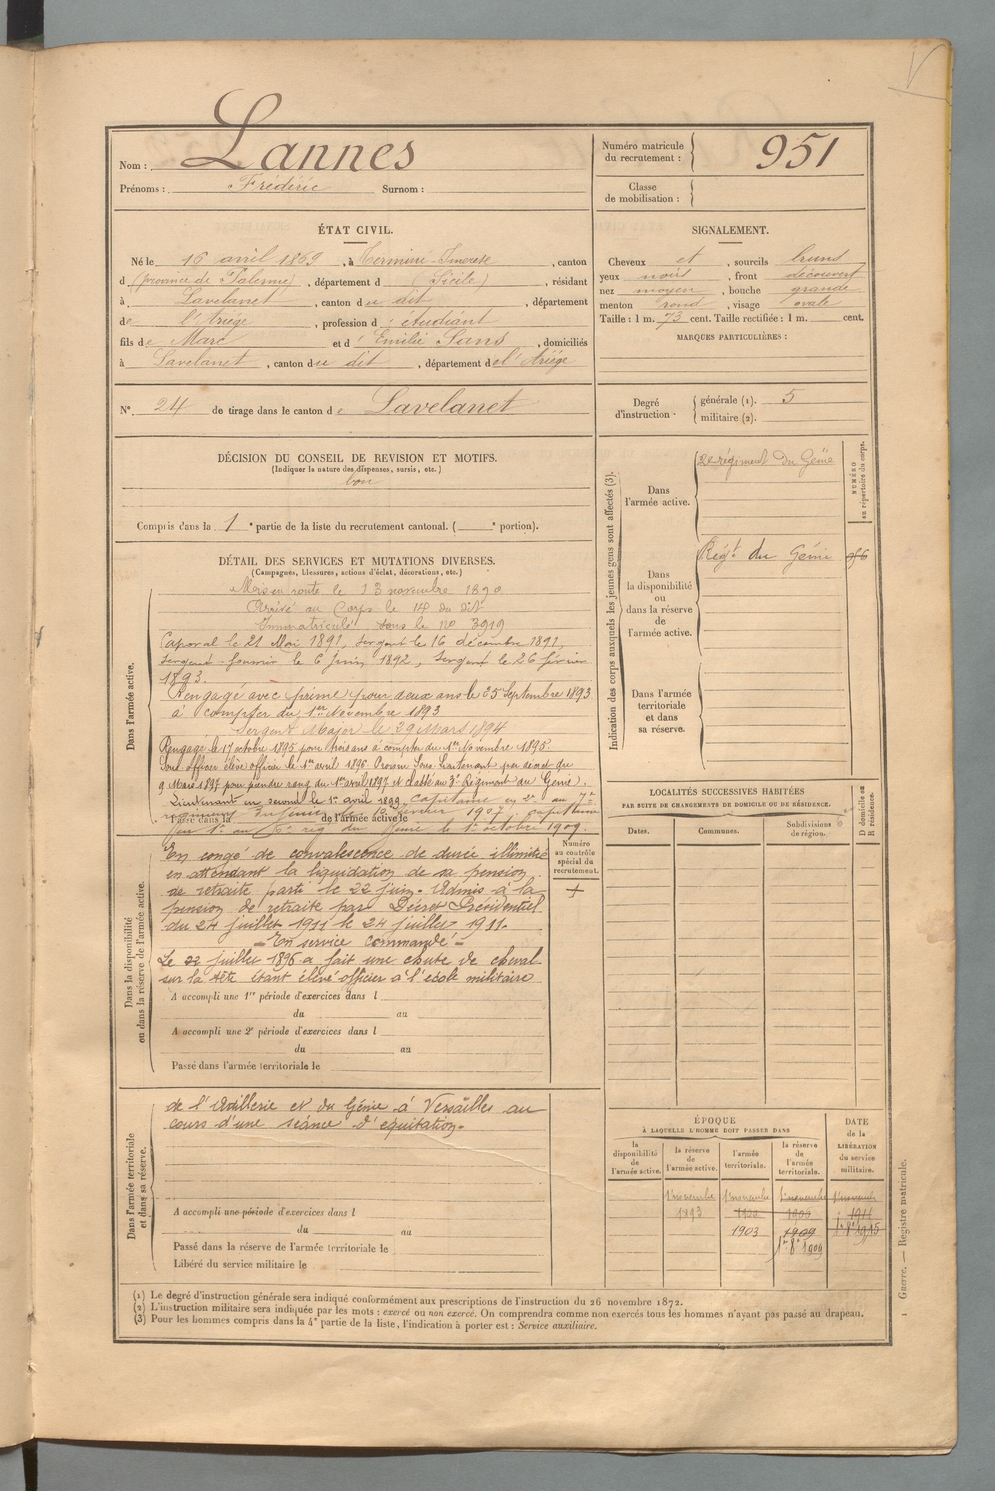 Nom : Lannes
Prénoms : Frédéric Surnom :
Numéro matricule du recrutement : 951
Classe de mobilisation :
ÉTAT CIVIL.
Né le 16 avril 1869, à Termini-Imerese, canton
d (province de Palerme), département d (Sicile), résidant
à Lavelanet, canton du dit, département
de l'Ariège, profession d'étudiant
fils de Marc et d'Emilie Sans, domiciliés
à Lavelanet, canton du dit, département de l'Ariège
SIGNALEMENT.
Cheveux et, sourcils bruns
yeux noirs, front découvert
nez moyen, bouche grande
menton rond, visage ovale
Taille : 1 m. 73 cent. Taille rectifiée : 1 m. cent.
MARQUES PARTICULIÈRES :
N° 24 de tirage dans le canton de Lavelanet
Degré d'instruction. générale (1). 5
militaire (2).
DÉCISION DU CONSEIL DE REVISION ET MOTIFS.
(Indiquer la nature des dispenses, sursis, etc.)
bon
Compris dans la 1e partie de la liste du recrutement cantonal. ( e portion).
DÉTAIL DES SERVICES ET MUTATIONS DIVERSES.
(Campagnes, blessures, actions d'éclat, décorations, etc.)
Dans l'armée active.
Mis en route le 13 novembre 1890
Arrivé au Corps le 14 du dit
Immatriculé sous le no 3919
Caporal le 21 Mai 1891, Sergent le 16 décembre 1891,
Sergent-fourrier le 6 juin 1892, Sergent le 26 février
1893.
Rengagé avec prime pour deux ans le 25 Septembre 1893
à compter du 1er Novembre 1893
Sergent Major le 29 Mars 1894
Rengagé le 17 octobre 1895 pour trois ans à compter du 1er Novembre 1895.
Sous officier élève officier le 1er avril 1896. Promu Sous Lieutenant par décret du
9 Mars 1897 pour prendre rang du 1er avril 1897 et classé au 3e Régiment du Génie.
Lieutenant en second le 1er avril 1899, capitaine en 2d au 7e
régiment du génie le février 1907, capitaine
Passé dans la de l'armée active le
en 1er au 6e reg du Génie le 1er octobre 1909.
Dans la disponibilité ou dans la réserve de l'armée active.
Numéro au contrôle spécial du recrutement.
En congé de convalescence de durée illimitée
en attendant la liquidation de sa pension
de retraite parti le 22 juin. Admis à la
pension de retraite par Décret Présidentiel
du 24 juillet 1911 le 24 juillet 1911.
En service commandé
Le 22 juillet 1896 a fait une chute de cheval
sur la tête étant élève officier à l'école militaire
A accompli une 1re période d'exercices dans l
du au
A accompli une 2e période d'exercices dans l
du au
Passé dans l'armée territoriale le
Dans l'armée territoriale et dans sa réserve.
de l'Artillerie et du Génie à Versailles au
cours d'une séance d'équitation.
A accompli une période d'exercices dans l
du au
Passé dans la réserve de l'armée territoriale le
Libéré du service militaire le
Indication des corps auxquels les jeunes gens sont affectés (3).
NUMÉRO au répertoire du corps.
Dans l'armée active.
2e régiment du Génie
Dans la disponibilité ou dans la réserve de l'armée active.
Régt du Génie
Dans l'armée territoriale et dans sa réserve.
LOCALITÉS SUCCESSIVES HABITÉES
PAR SUITE DE CHANGEMENTS DE DOMICILE OU DE RÉSIDENCE.
Dates. Communes. Subdivisions de région. D domicile ou R résidence.
ÉPOQUE
À LAQUELLE L'HOMME DOIT PASSER DANS
la disponibilité de l'armée active.
la réserve de l'armée active.
l'armée territoriale.
la réserve de l'armée territoriale.
DATE de la LIBÉRATION du service militaire.
1er novembre 1er novembre 1er novembre 1er novembre
1893 1906 1911
1903 1909
(1) Le degré d'instruction générale sera indiqué conformément aux prescriptions de l'instruction du 26 novembre 1872.
(2) L'instruction militaire sera indiquée par les mots : exercé ou non exercé. On comprendra comme non exercés tous les hommes n'ayant pas passé au drapeau.
(3) Pour les hommes compris dans la 4e partie de la liste, l'indication à porter est : Service auxiliaire.
1 Guerre. — Registre matricule.